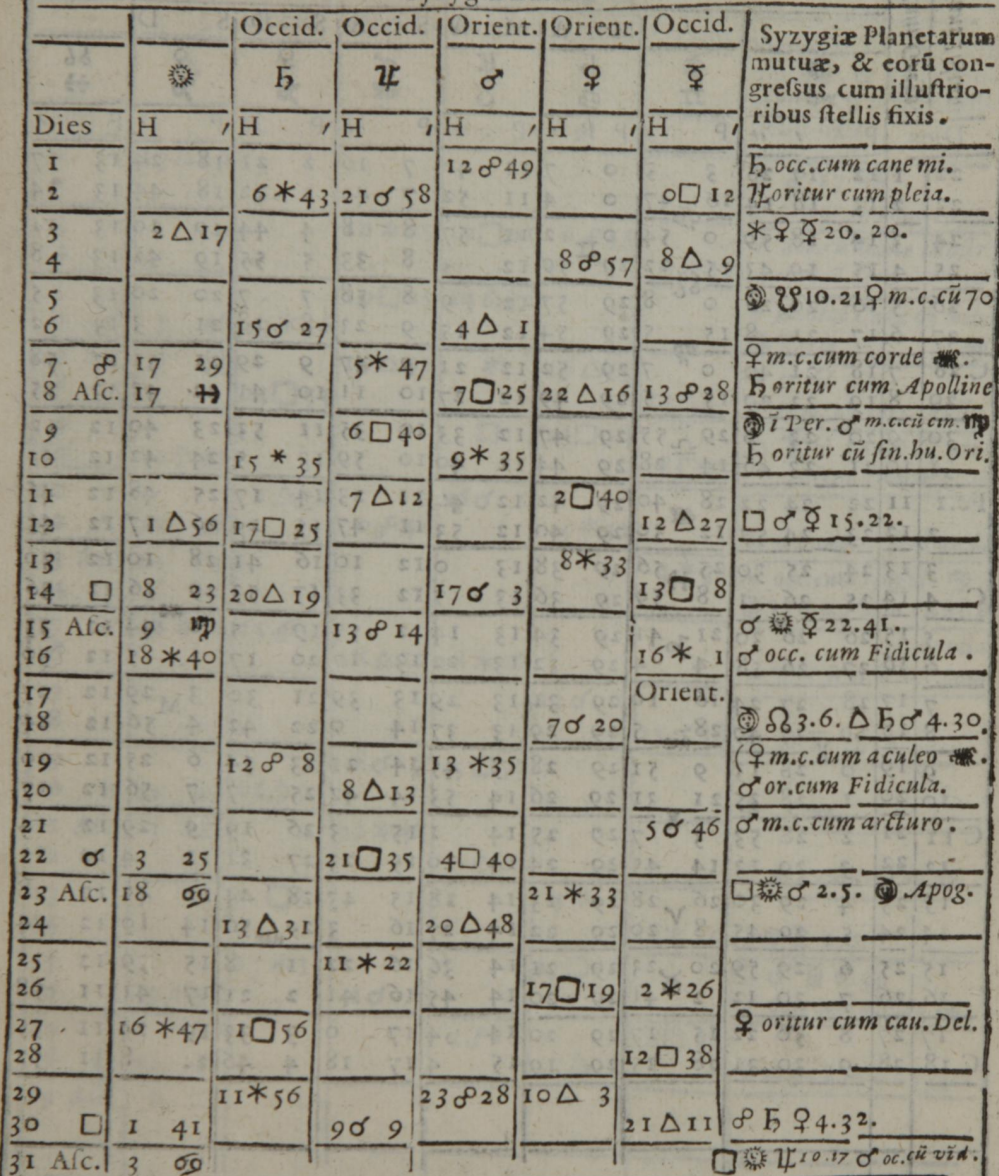 Occid. Occid. Orient. Orient. Occid. Syzygiæ Planetarum
☉ ♄ ♃ ♂ ♀ ☿ mutuæ, & eorũ con-
greſsus cum illuſtrio-
Dies H ′ H ′ H ′ H ′ H ′ H ribus ſtellis fixis.
1 12☍49 ♄ occ.cum cane mi.
2 6✶43 21☌58 0□12 ♃oritur cum pleia.
3 2△17 ✶♀☿20.20.
4 8☍57 8△9
5 ☋10.21♀m.c.cũ70
6 15☌27 4△1
7 ☍ 17 29 5✶47 ♀m.c.cum corde ♏.
8 Aſc. 17 ♓ 7□25 22△16 13☍28 ♄oritur cum Apolline
9 6□40 ĩ Per. ♂ m.c.cũ cin.♍
10 15✶35 9✶35 ♄ oritur cũ ſin.hu.Ori.
11 7△12 2□40
12 1△56 17□25 12△27 □♂☿15.22.
13 8✶33
14 □ 8 23 20△19 17☌3 13□8
15 Aſc. 9 ♍ 13☍14 ☌☉☿22.41.
16 18✶40 16✶1 ♂occ. cum Fidicula.
17 Orient.
18 7☌20 ☊3.6. △♄♂4.30.
19 12☍8 13✶35 (♀m.c.cum aculeo ♏.
20 8△13 ♂or.cum Fidicula.
21 5☌46 ♂m.c.cum arcturo.
22 ☌ 3 25 21□35 4□40
23 Aſc. 18 ♋ 21✶33 □☉♂2.5. Apog.
24 13△31 20△48
25 11✶22
26 17□19 2✶26
27 16✶47 1□56 ♀ oritur cum cau.Del.
28 12□38
29 11✶56 23☍28 10△3
30 □ 1 41 9☌9 21△11 ☍♄♀4.32.
31 Aſc. 3 ♋ □☉♃10.17 ♂oc.cũ vĩd.